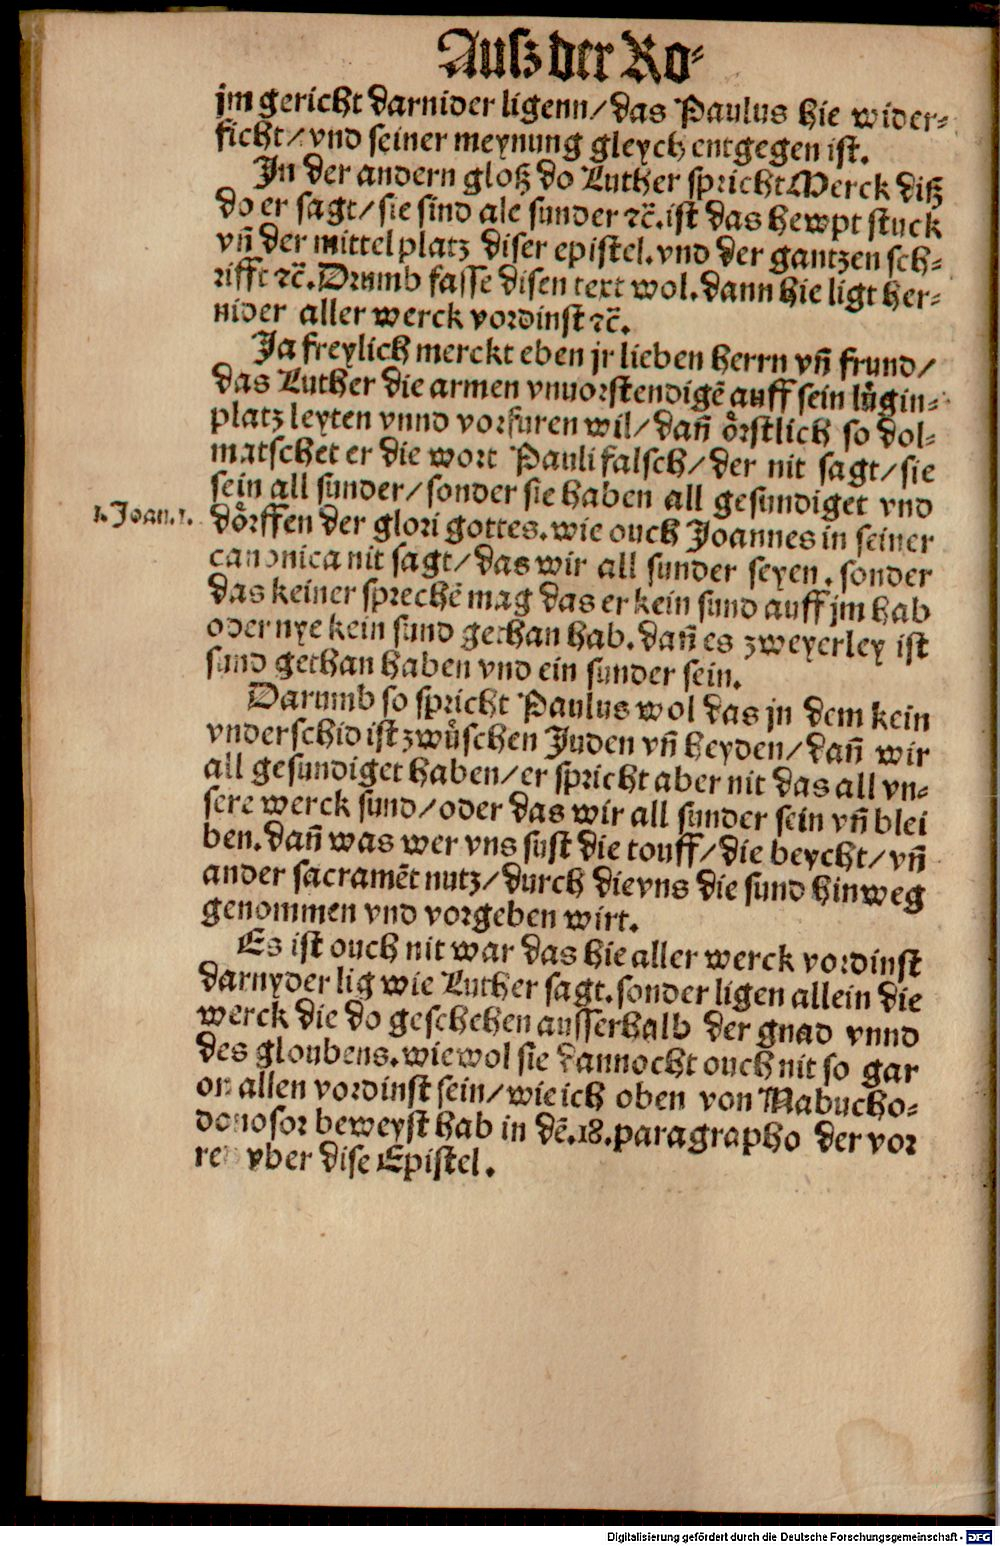 Ausz der Ro-
jm gericht darnider ligenn/das Paulus hie wider-
ficht/vnd seiner meynung gleych entgegen ist.
In der andern gloß do Luther spricht Merck diß
do er sagt/sie sind ale sunder ⁊c̃. ist das hewpt stuck
vn̄ der mittel platz diser epistel. vnd der gantzen sch-
rifft ⁊c̃. Drumb fasse disen text wol. dann hie ligt her-
nider aller werck vordinst ⁊c̃.
Ja freylich merckt eben jr lieben herrn vn̄ frund/
das Luther die armen vnuorstendigẽ auff sein lůgin-
platz leyten vnnd vorfuren wil/dan̄ oͤrstlich so dol-
matschet er die wort Pauli falsch/der nit sagt/sie
sein all sunder/sonder sie haben all gesundiget vnd
1. Joan. 1.
doͤrffen der glori gottes. wie ouch Joannes in seiner
canonica nit sagt/das wir all sunder seyen. sonder
das keiner sprechẽ mag das er kein sund auff jm hab
oder nye kein sund gethan hab. dan̄ es zweyerley ist
sund gethan haben vnd ein sunder sein.
Darumb so spricht Paulus wol das jn dem kein
vnderschid ist zwůschen Juden vn̄ heyden/dan̄ wir
all gesundiget haben/er spricht aber nit das all vn-
sere werck sund/oder das wir all sunder sein vn̄ blei
ben. dan̄ was wer vns sust die touff/die beycht/vn̄
ander sacramẽt nutz/durch die vns die sund hinweg
genommen vnd vorgeben wirt.
Es ist ouch nit war das hie aller werck vordinst
darnyder lig wie Luther sagt. sonder ligen allein die
werck die do geschehen ausserhalb der gnad vnnd
des gloubens. wiewol sie dannocht ouch nit so gar
on allen vordinst sein/wie ich oben von Nabucho-
donosor beweyst hab in dẽ. 18. paragrapho der vor
red vber dise Epistel.
Digitalisierung gefördert durch die Deutsche Forschungsgemeinschaft - DFG